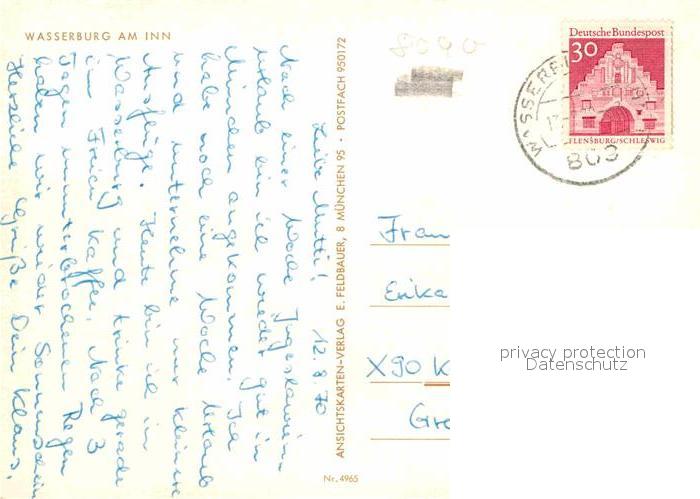 WASSERBURG AM INN
Liebe Mutti! 12.8.70
Nach einer Woche Jugoslawien-
urlaub bin ich wieder gut in
München angekommen. Ich
habe noch eine Woche Urlaub
und unternehme nur kleinere
Ausflüge. Heute bin ich in
Wasserburg und trinke gerade
im Freien Kaffee. Nach 3
Tagen ununterbrochenen Regen
haben wir wieder Sonnenschein
Herzliche Grüße Dein Klaus.
ANSICHTSKARTEN-VERLAG E. FELDBAUER, 8 MÜNCHEN 95 · POSTFACH 950172
Nr. 4965
8090
Deutsche Bundespost
30
FLENSBURG/SCHLESWIG
WASSERB
809
Frau
Erika
X90 K
Gre
privacy protection
Datenschutz